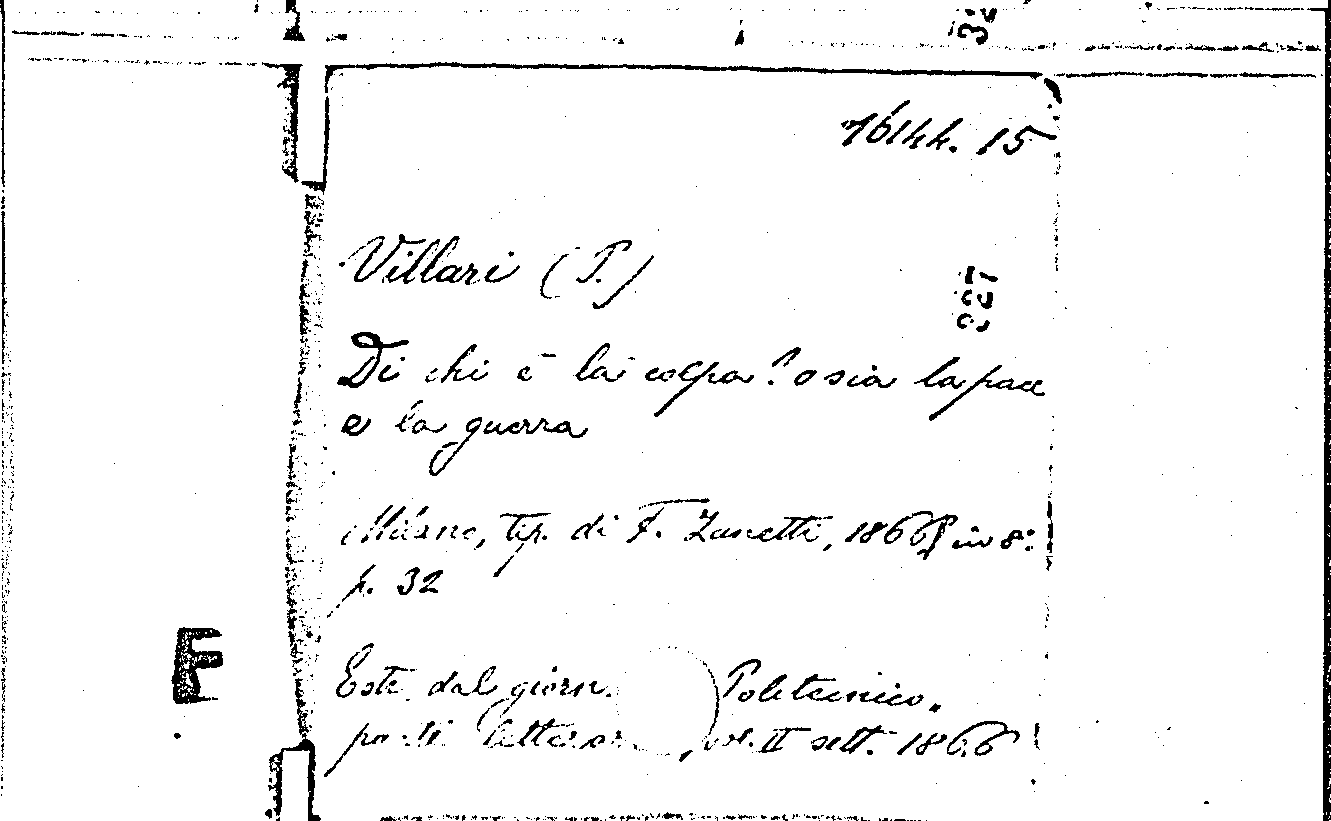 16144. 15
Villari (P.)
227
Di chi è la colpa? o sia la pace
e la guerra
Milano, tip. di F. Zanetti, 1866 in 8:
p. 32
F
Estr. dal giorn. Politecnico.
parte letterar , vol. II sett. 1866